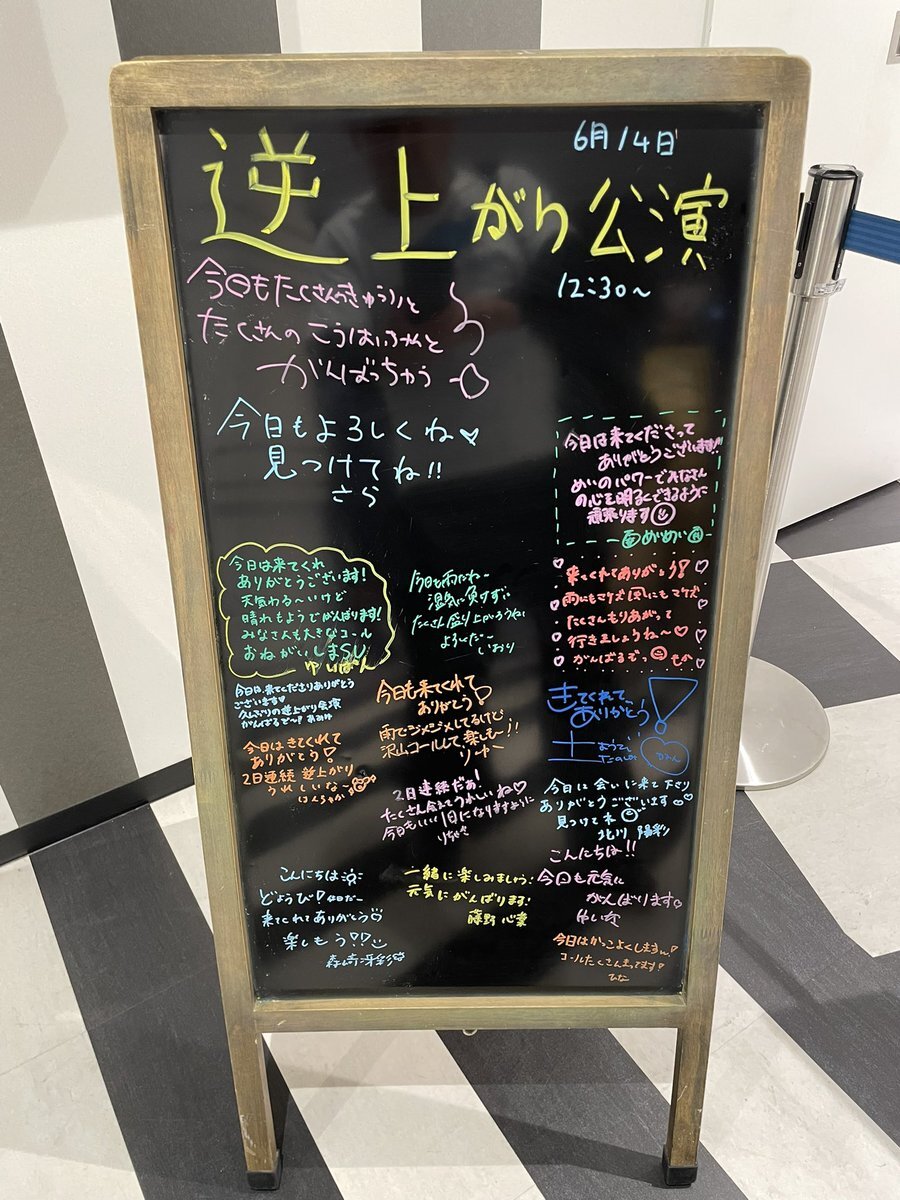 6月14日
逆上がり公演
12:30~
今日もたくさん
たくさんの こうはいちゃんと
がんばっちゃう
今日もよろしくね♡
見つけてね!!
さら
今日は来てくださって
ありがとうございます!!
めいのパワーでみなさん
の心を明るくできるように
頑張ります
めいめい
今日は来てくれ
ありがとうございます!
天気わる〜いけど
晴れもようでがんばります!
みなさんも大きなコール
おねがいしまSU
ゆいぱん
今日も雨だねー
湿気に負けず
たくさん盛り上がろうね!
よろしくだー
いおり
来てくれてありがとう!
雨にもマケズ 風にもマケズ
たくさんもりあがって
行きましょうね〜♡
がんばるぞっ もか
今日は来てくださりありがとう
ございます♡
久しぶりの逆上がり公演
がんばるぞ〜!
今日も来てくれて
ありがとう!
雨でジメジメしてるけど
沢山コールして、楽しも〜!!
りゅー
きてくれて
ありがとう!
土ようび
たのしも
今日はきてくれて
ありがとう!
2日連続 逆上がり
うれしいな〜
はんちゃん
2日連続だぁ!
たくさん会えてうれしいね♡
今日もいい1日になりますように
りちゃき
今日は 会いに来て下さり
ありがとうございます
見つけてネ
北川 陽彩
こんにちは
どようび! 休日だー
来てくれてありがとう♡
楽しもう!!
森﨑冴彩
一緒に楽しみましょう!
元気にがんばります!
藤野 心葉
こんにちは!!
今日も元気に
がんばります♡
ゆいな
今日はかっこよくします
コールたくさんまってます!
ひな